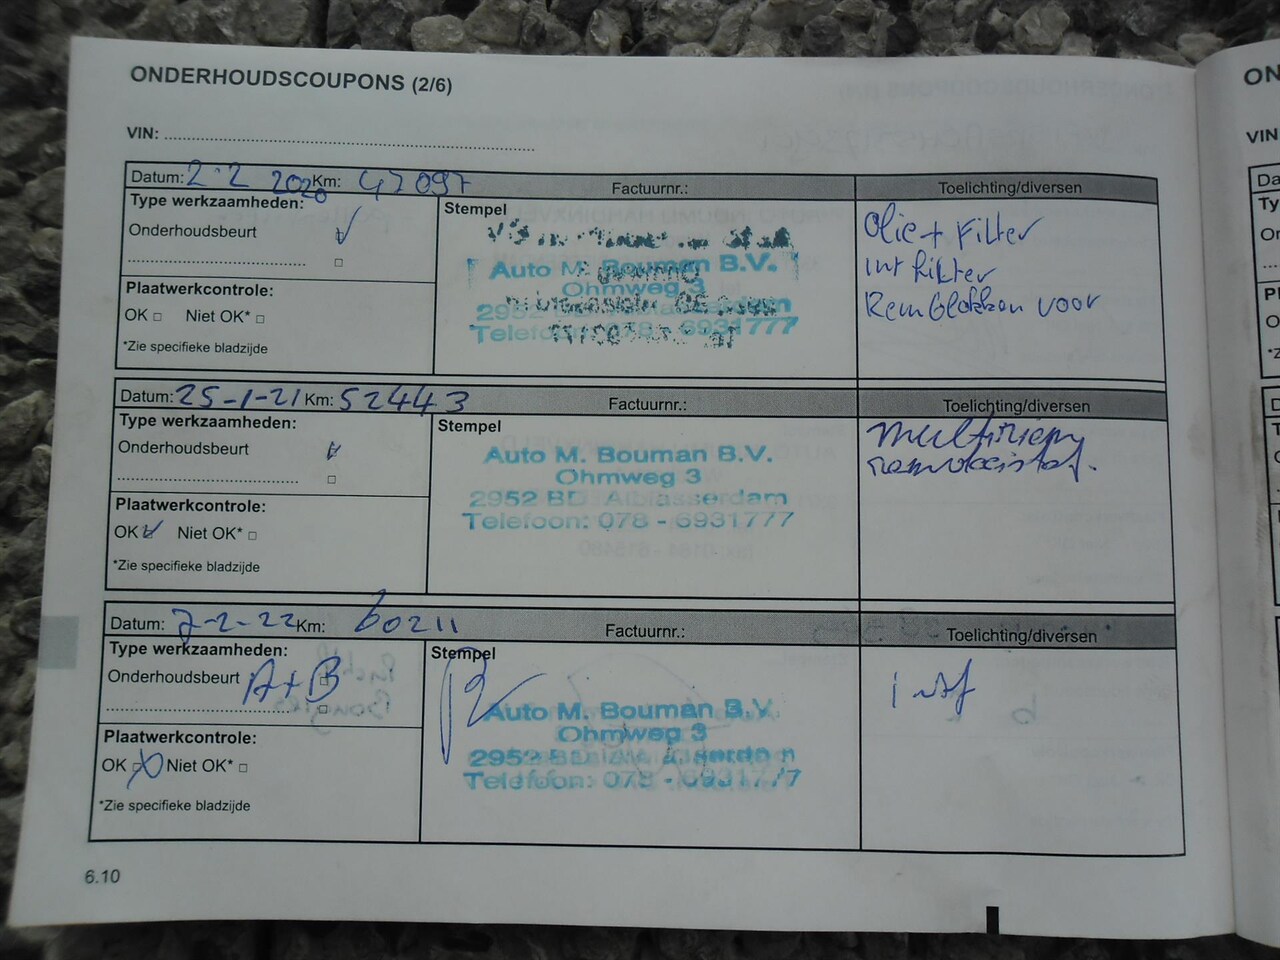 ONDERHOUDSCOUPONS (2/6)
VIN:
Datum: 2-2 2020 Km: 47097 Factuurnr.: Toelichting/diversen
Type werkzaamheden:
Onderhoudsbeurt
Plaatwerkcontrole:
OK □ Niet OK* □
*Zie specifieke bladzijde
Stempel
Auto M. Bouman B.V.
Ohmweg 3
Telefoon: 078 - 6931777
Olie + Filter
Int filter
Remblokken voor
Datum: 25-1-21 Km: 52443 Factuurnr.: Toelichting/diversen
Type werkzaamheden:
Onderhoudsbeurt
Plaatwerkcontrole:
OK Niet OK* □
*Zie specifieke bladzijde
Stempel
Auto M. Bouman B.V.
Ohmweg 3
2952 BD Alblasserdam
Telefoon: 078 - 6931777
multiriem
remvloeistof.
Datum: 7-2-22 Km: 60211 Factuurnr.: Toelichting/diversen
Type werkzaamheden:
Onderhoudsbeurt A+B
Plaatwerkcontrole:
OK Niet OK* □
*Zie specifieke bladzijde
Stempel
Auto M. Bouman B.V.
Ohmweg 3
2952 BD
Telefoon: 078 - 6931777
6.10
ON
VIN